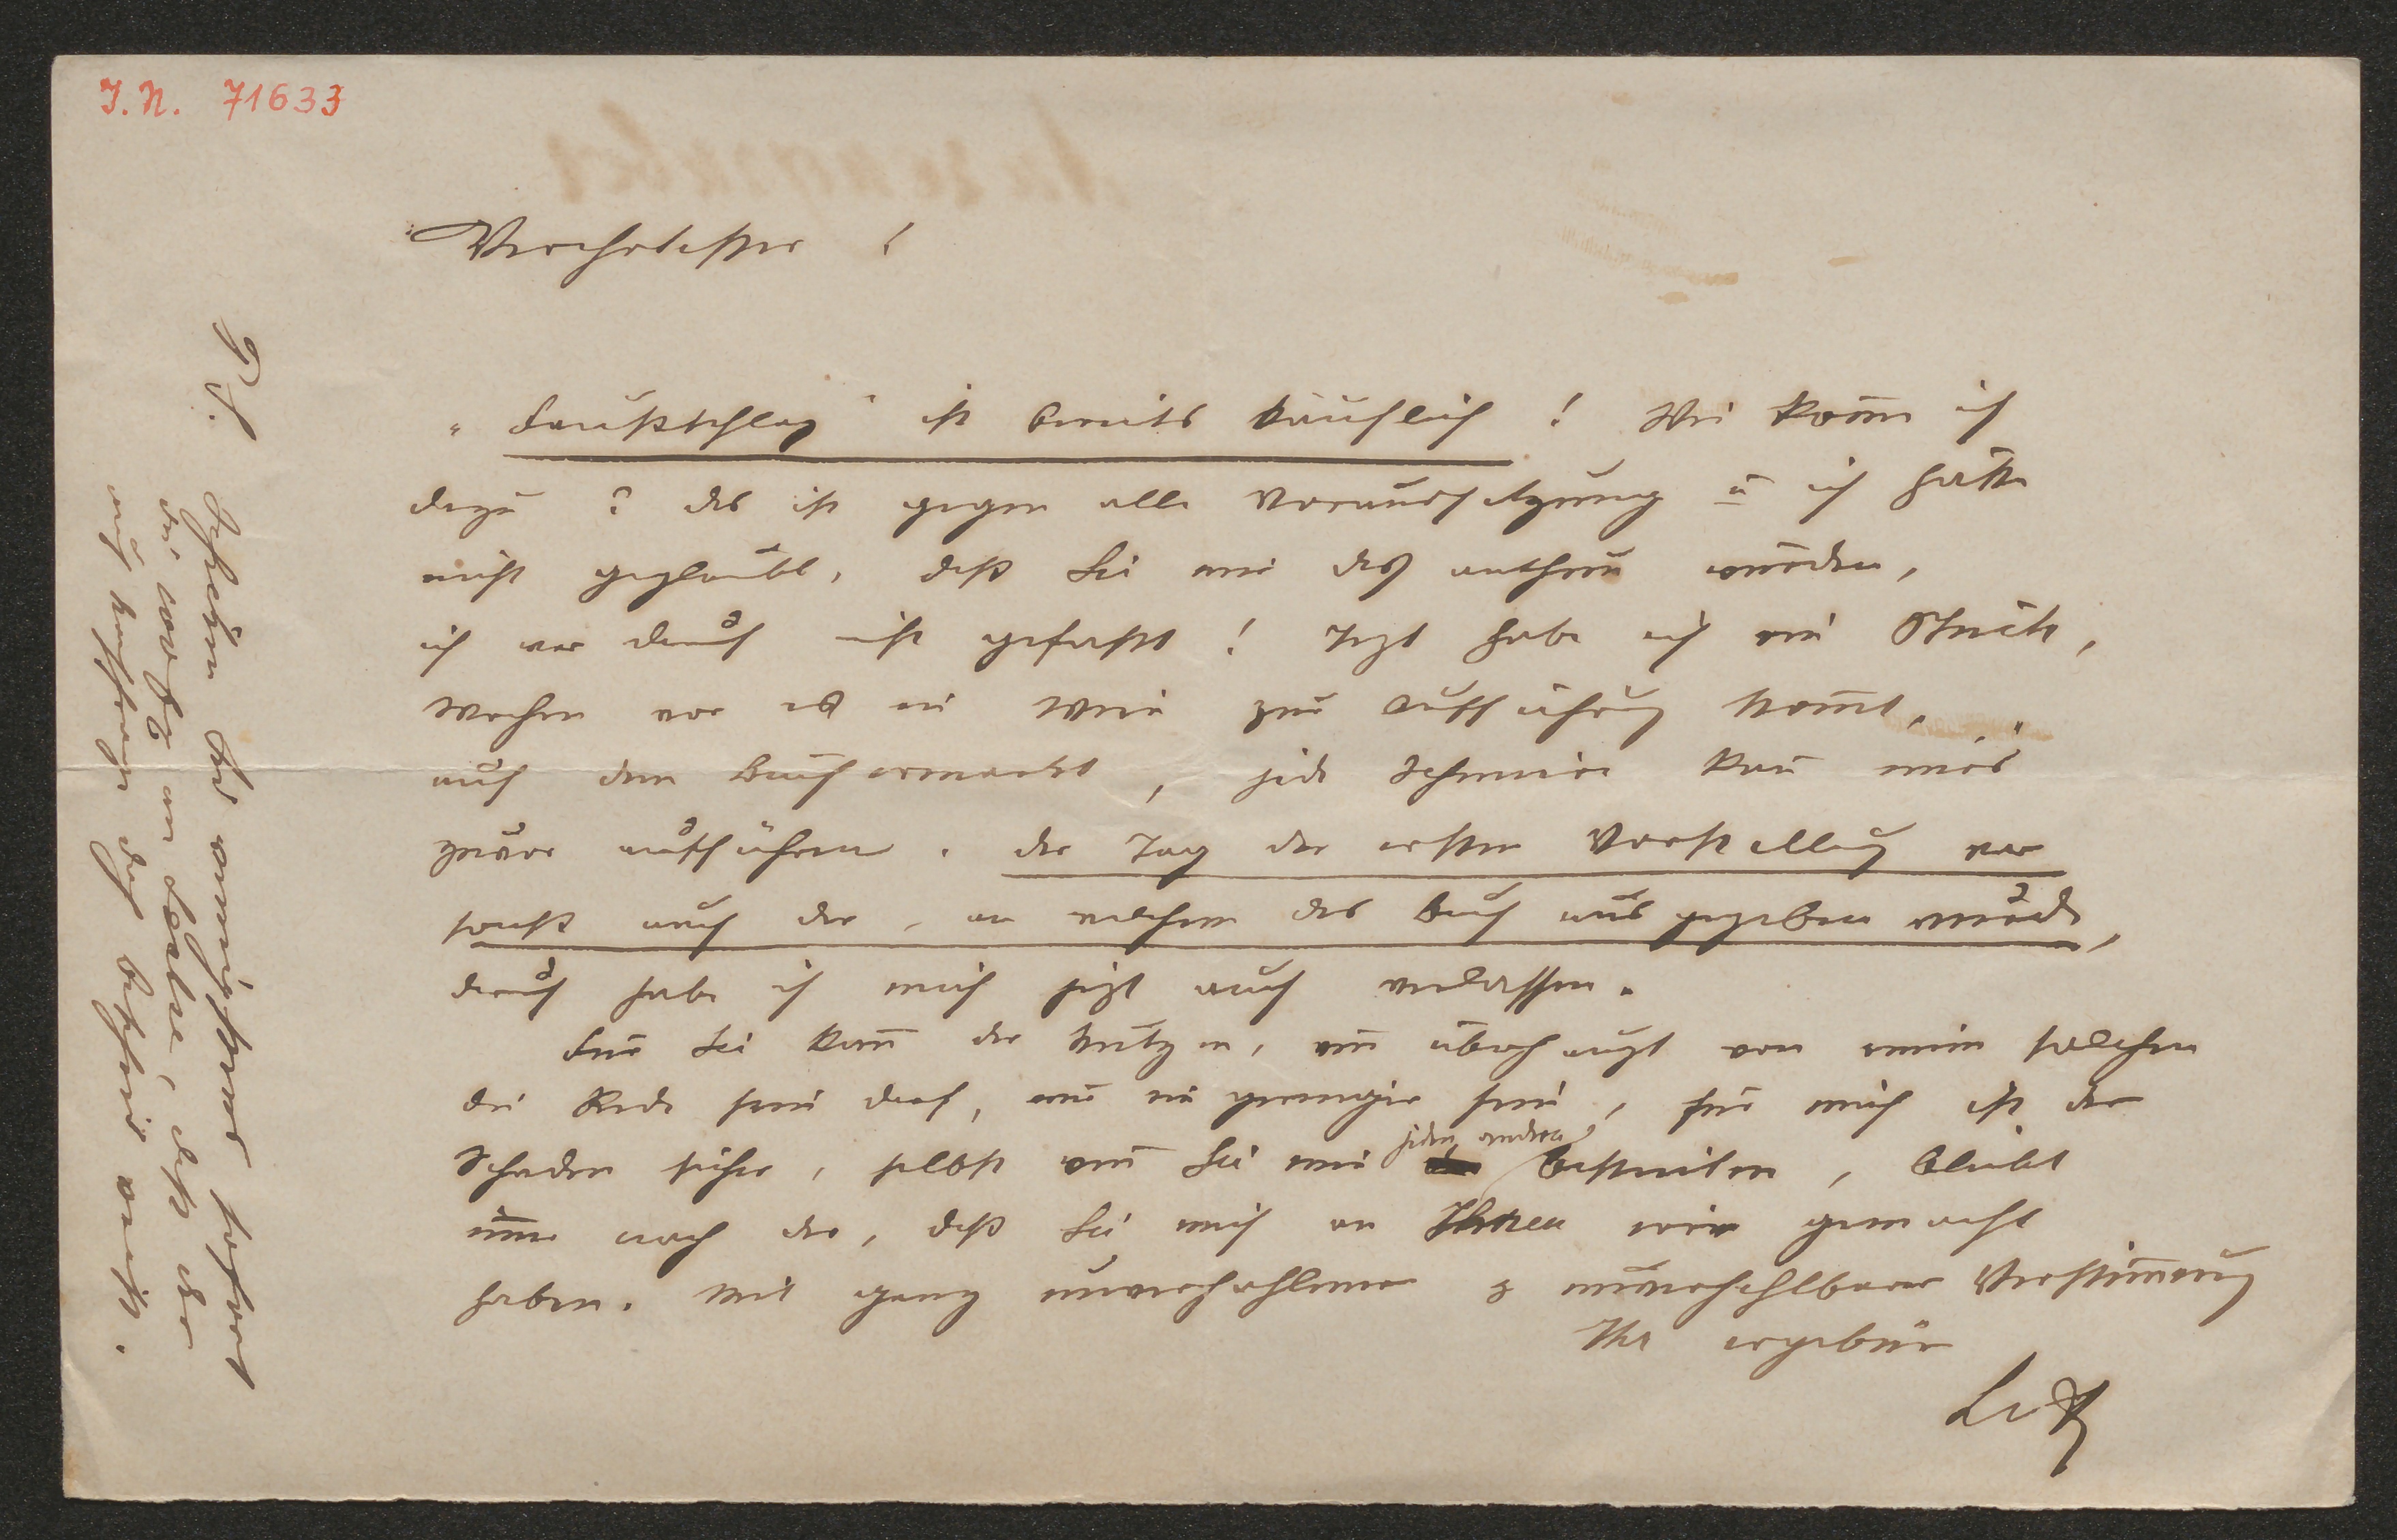 J. N. 71633
Verehrtester!
"Faustschlag" ist bereits käuflich! Wie kom̄e ich
dazu? das ist gegen alle Voraussetzung u ich hätte
nicht geglaubt, daß Sie mir das anthun würden,
ich war darauf nicht gefasst! Jezt habe ich ein Stück,
Wochen vor es in Wien zur Aufführung kom̄t,
auf dem Büchermarkt, jede Schmiere kan̄ mirs
zuvor aufführen. der Tag der ersten Vorstellung war
sonst auch der, an welchem das Buch ausgegeben wurde,
darauf habe ich mich jezt auch verlassen.
Für Sie kan̄ der Nutzen, wen̄ überhaupt von einem solchen
die Rede sein darf, nur ein geringer sein, für mich ist der
Schaden sicher, selbst wen̄ Sie mir jeden andern bestreiten, bleibt
im̄er noch der, daß Sie mich an Ihnen irre gemacht
haben. Mit ganz unverhohlener & unverhehlbarer Verstim̄ung
Ihr ergebener
P. S. Schicken Sie wenigstens sofort
die an Lobe, daß der
auf das beziehen .